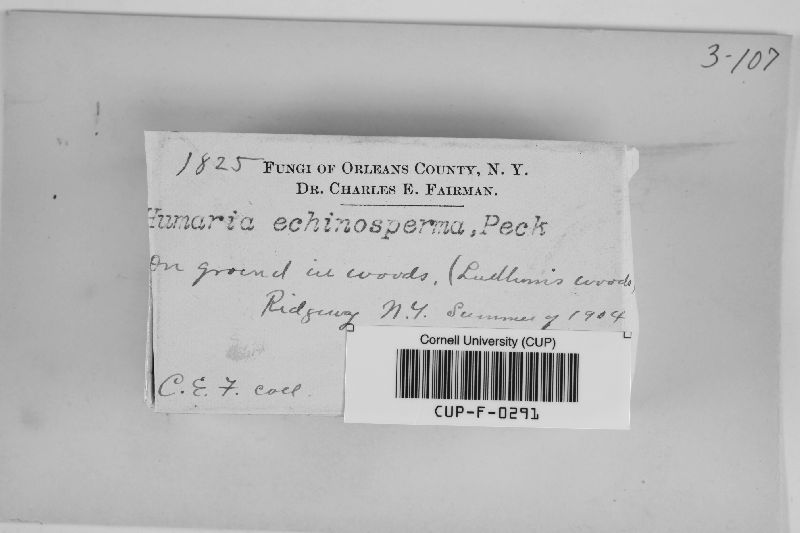 3-107
1825 FUNGI OF ORLEANS COUNTY, N. Y.
DR. CHARLES E. FAIRMAN.
Humaria echinosperma, Peck
On ground in woods, (Ludlum's woods)
Ridgeway N.Y. Summer of 1904
C. E. F. coll.
Cornell University (CUP)
CUP-F-0291